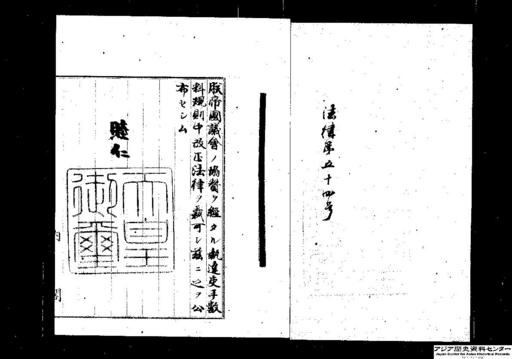 法律第五十四号
朕帝國議會ノ協賛ヲ經タル執達吏手數
料規則中改正法律ヲ裁可シ茲ニ之ヲ公
布セシム
睦仁
天皇
御璽
内閣
アジア歴史資料センター
Japan Center for Asian Historical Records